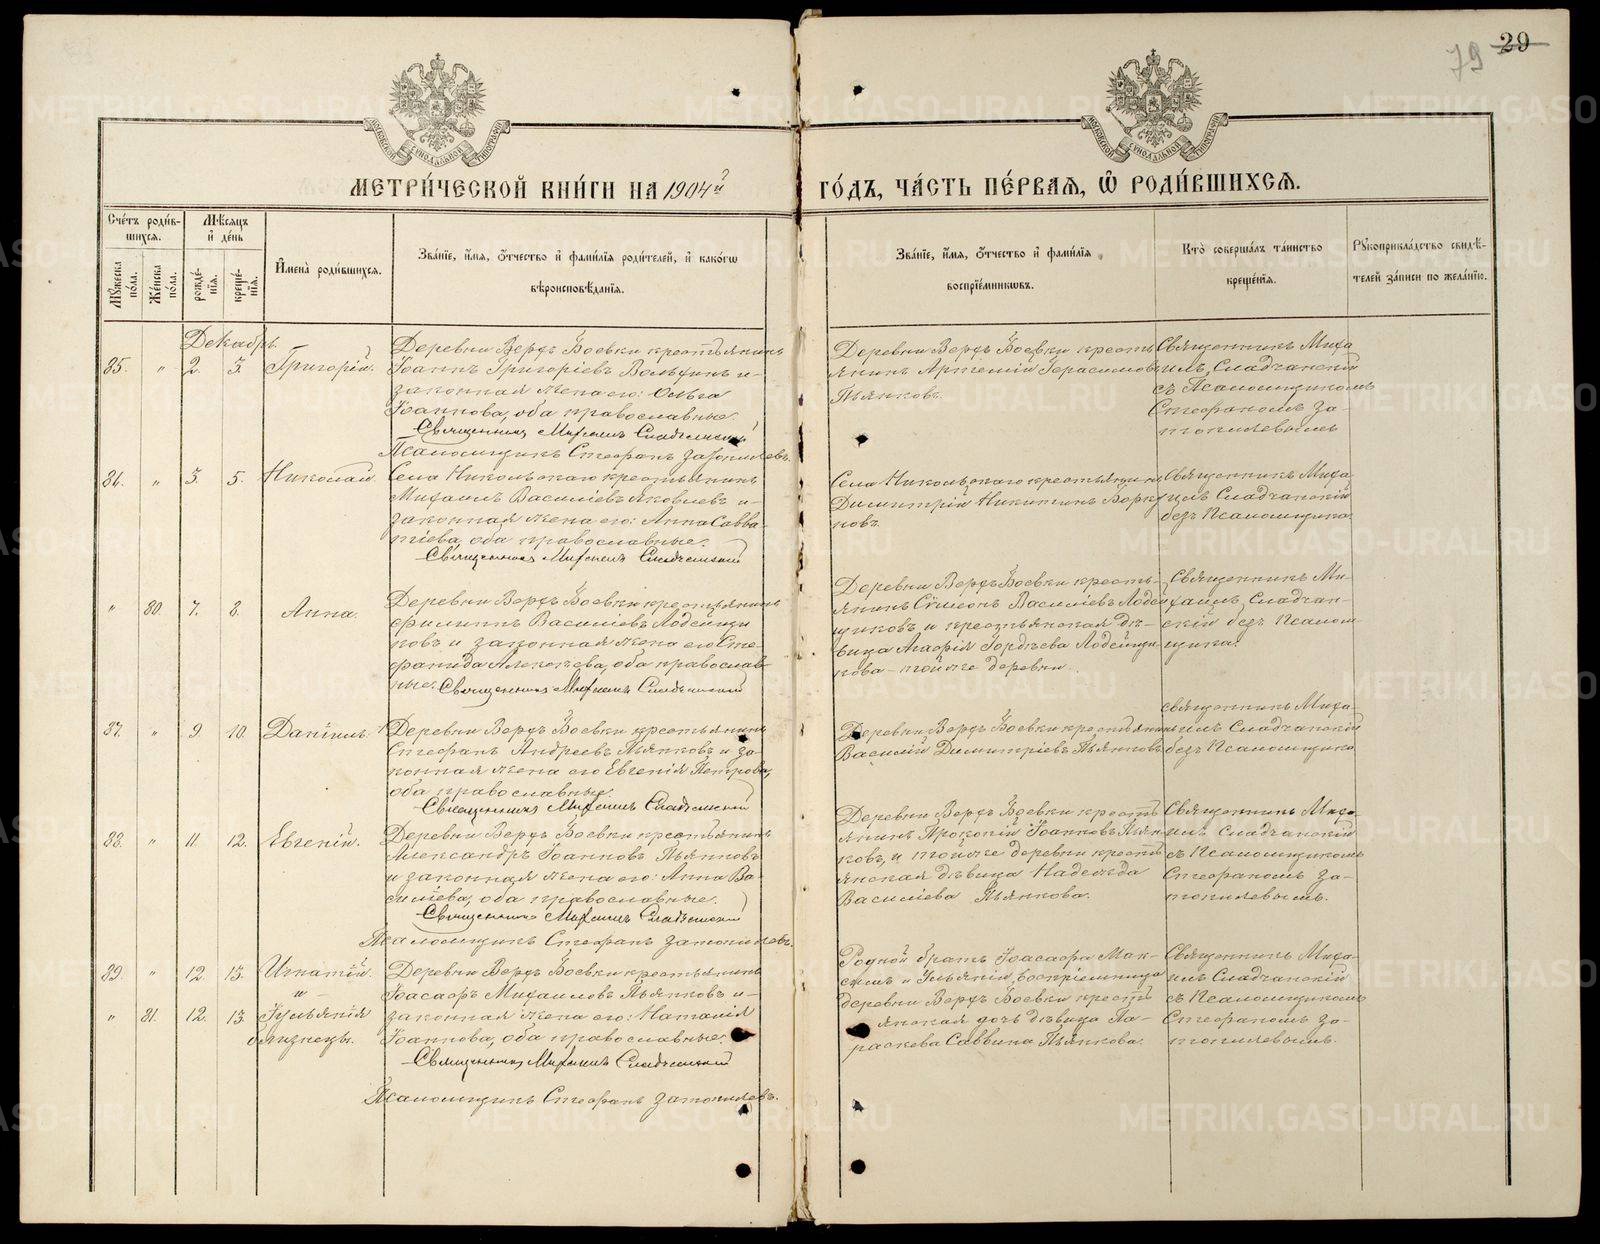 79 29
МОСКОВСКОЙ СѴНОДАЛЬНОЙ ТИПОГРАФІИ
МОСКОВСКОЙ СѴНОДАЛЬНОЙ ТИПОГРАФІИ
МЕТРИ́ЧЕСКОЙ КНИ́ГИ НА 1904й ГО́ДЪ, ЧА́СТЬ ПЕ́РВАѦ, Ѡ РОДИ́ВШИХСѦ.
Сче́тъ роди́в-
шихсѧ.
Мꙋ́жеска по́ла.
Же́нска по́ла.
Мѣ́сѧцъ
и҆ де́нь
рожде́-
нїѧ.
креще́-
нїѧ.
И҆мена̀ роди́вшихсѧ.
Зва́нїе, и҆́мѧ, ѻ҆́тчество и҆ фами́лїѧ роди́телей, и҆ како́гѡ
вѣроисповѣ́данїѧ.
Зва́нїе, и҆́мѧ, ѻ҆́тчество и҆ фами́лїѧ
воспрїе́мникѡвъ.
Кто̀ соверша́лъ та́инство
креще́нїѧ.
Рꙋкоприкла́дство свидѣ́-
телей за́писи по жела́нїю.
Декабрь.
85. " 2. 3. Григорій.
Деревни Верхъ Боевки крестьянинъ
Іоаннъ Григоріевъ Вольхинъ и
законная жена его: Ольга
Іоаннова, оба православные.
Священникъ Михаилъ Сладчанскій
Псаломщикъ Стефанъ Затопляевъ.
Деревни Верхъ Боевки кресть
янинъ Артемій Герасимовъ
Пьянковъ.
Священникъ Миха
илъ Сладчанскій
съ Псаломщикомъ
Стефаномъ За-
топляевымъ
86. " 3. 5. Николай.
Села Никольскаго крестьянинъ
Михаилъ Василіевъ Яковлевъ и
законная жена его: Анна Савва-
тіева, оба православные.
Священникъ Михаилъ Сладчанскій
Села Никольскаго крестьянинъ
Димитрій Никитинъ
новъ.
Священникъ Миха
илъ Сладчанскій
безъ Псаломщика.
" 80. 7. 8. Анна.
Деревни Верхъ Боевки крестьянинъ
Филиппъ Василіевъ Лодейщи
ковъ и законная жена его Сте-
фанида Алексѣева, оба православ-
ные. Священникъ Михаилъ Сладчанскій
Деревни Верхъ Боевки кресть-
янинъ Сѵмеонъ Василіевъ Лодей
щиковъ и крестьянская дѣ-
вица Агафія Гордѣева Лодейщи
кова - тойже деревни.
Священникъ Ми-
хаилъ Сладчан-
скій безъ Псалом-
щика.
87. " 9. 10. Даніилъ.
Деревни Верхъ Боевки крестьянинъ
Стефанъ Андреевъ Пьянковъ и за-
конная жена его Евгенія Петрова,
оба православные.
Священникъ Михаилъ Сладчанскій
Деревни Верхъ Боевки крестьянинъ
Василій Димитріевъ Пьянковъ
Священникъ Миха-
илъ Сладчанскій
безъ Псаломщика.
88. " 11. 12. Евгеній.
Деревни Верхъ Боевки крестьянинъ
Александръ Іоанновъ Пьянковъ
и законная жена его: Анна Ва-
силіева, оба православные.
Священникъ Михаилъ Сладчанскій
Псаломщикъ Стефанъ Затопляевъ.
Деревни Верхъ Боевки кресть
янинъ Прокопій Іоанновъ Пьян
ковъ, и тойже деревни кресть
янская дѣвица Надежда
Василіева Пьянкова.
Священникъ Миха-
илъ Сладчанскій
съ Псаломщикомъ
Стефаномъ За-
топляевымъ.
89. " 12. 13. Игнатій.
и
" 81. 12. 13. Іуліанія
близнецы.
Деревни Верхъ Боевки крестьянинъ
Іоасафъ Михаиловъ Пьянковъ и
законная жена его: Наталія
Іоаннова, оба православные.
Священникъ Михаилъ Сладчанскій
Псаломщикъ Стефанъ Затопляевъ.
Родной братъ Іоасафа Мак-
симъ и Ульяніи, воспріемница
деревни Верхъ Боевки кресть
янская дочь дѣвица Па-
раскева Саввина Пьянкова.
Священникъ Миха-
илъ Сладчанскій
съ Псаломщикомъ
Стефаномъ За-
топляевымъ.
METRIKI.GASO-URAL.RU